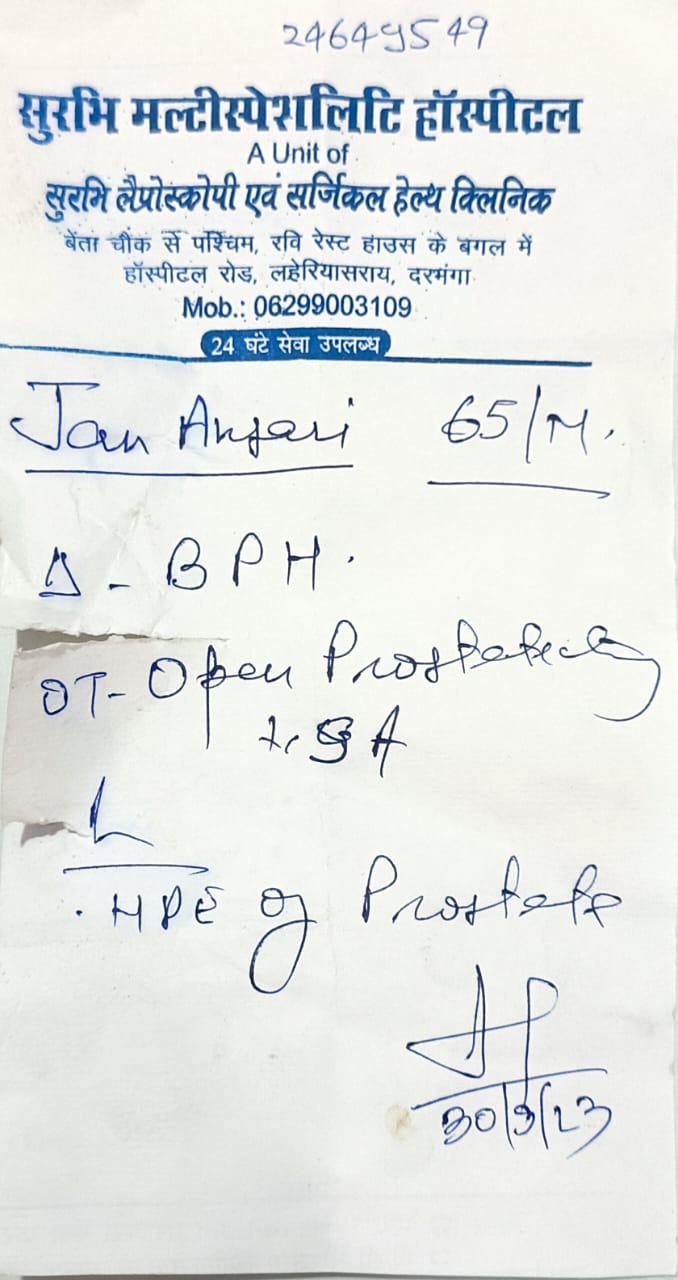 24649549
सुरभि मल्टीस्पेशलिटि हॉस्पीटल
A Unit of
सुरभि लैप्रोस्कोपी एवं सर्जिकल हेल्थ क्लिनिक
बेंता चौक से पश्चिम, रवि रेस्ट हाउस के बगल में
हॉस्पीटल रोड, लहेरियासराय, दरभंगा
Mob.: 06299003109
24 घंटे सेवा उपलब्ध
Jan Ansari 65/M.
Δ - BPH.
OT- Open Prostatectomy
SA
. HPE of Prostate
30/3/23